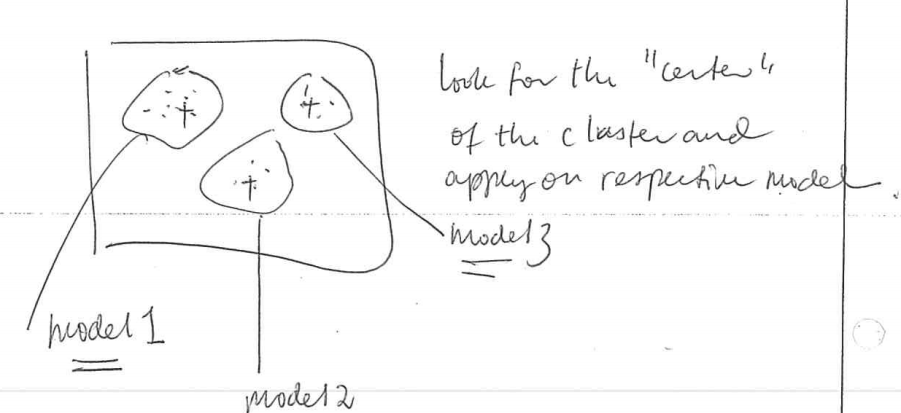 look for the "center"
of the claster and
apply on respective model.
model 3
model 1
model 2